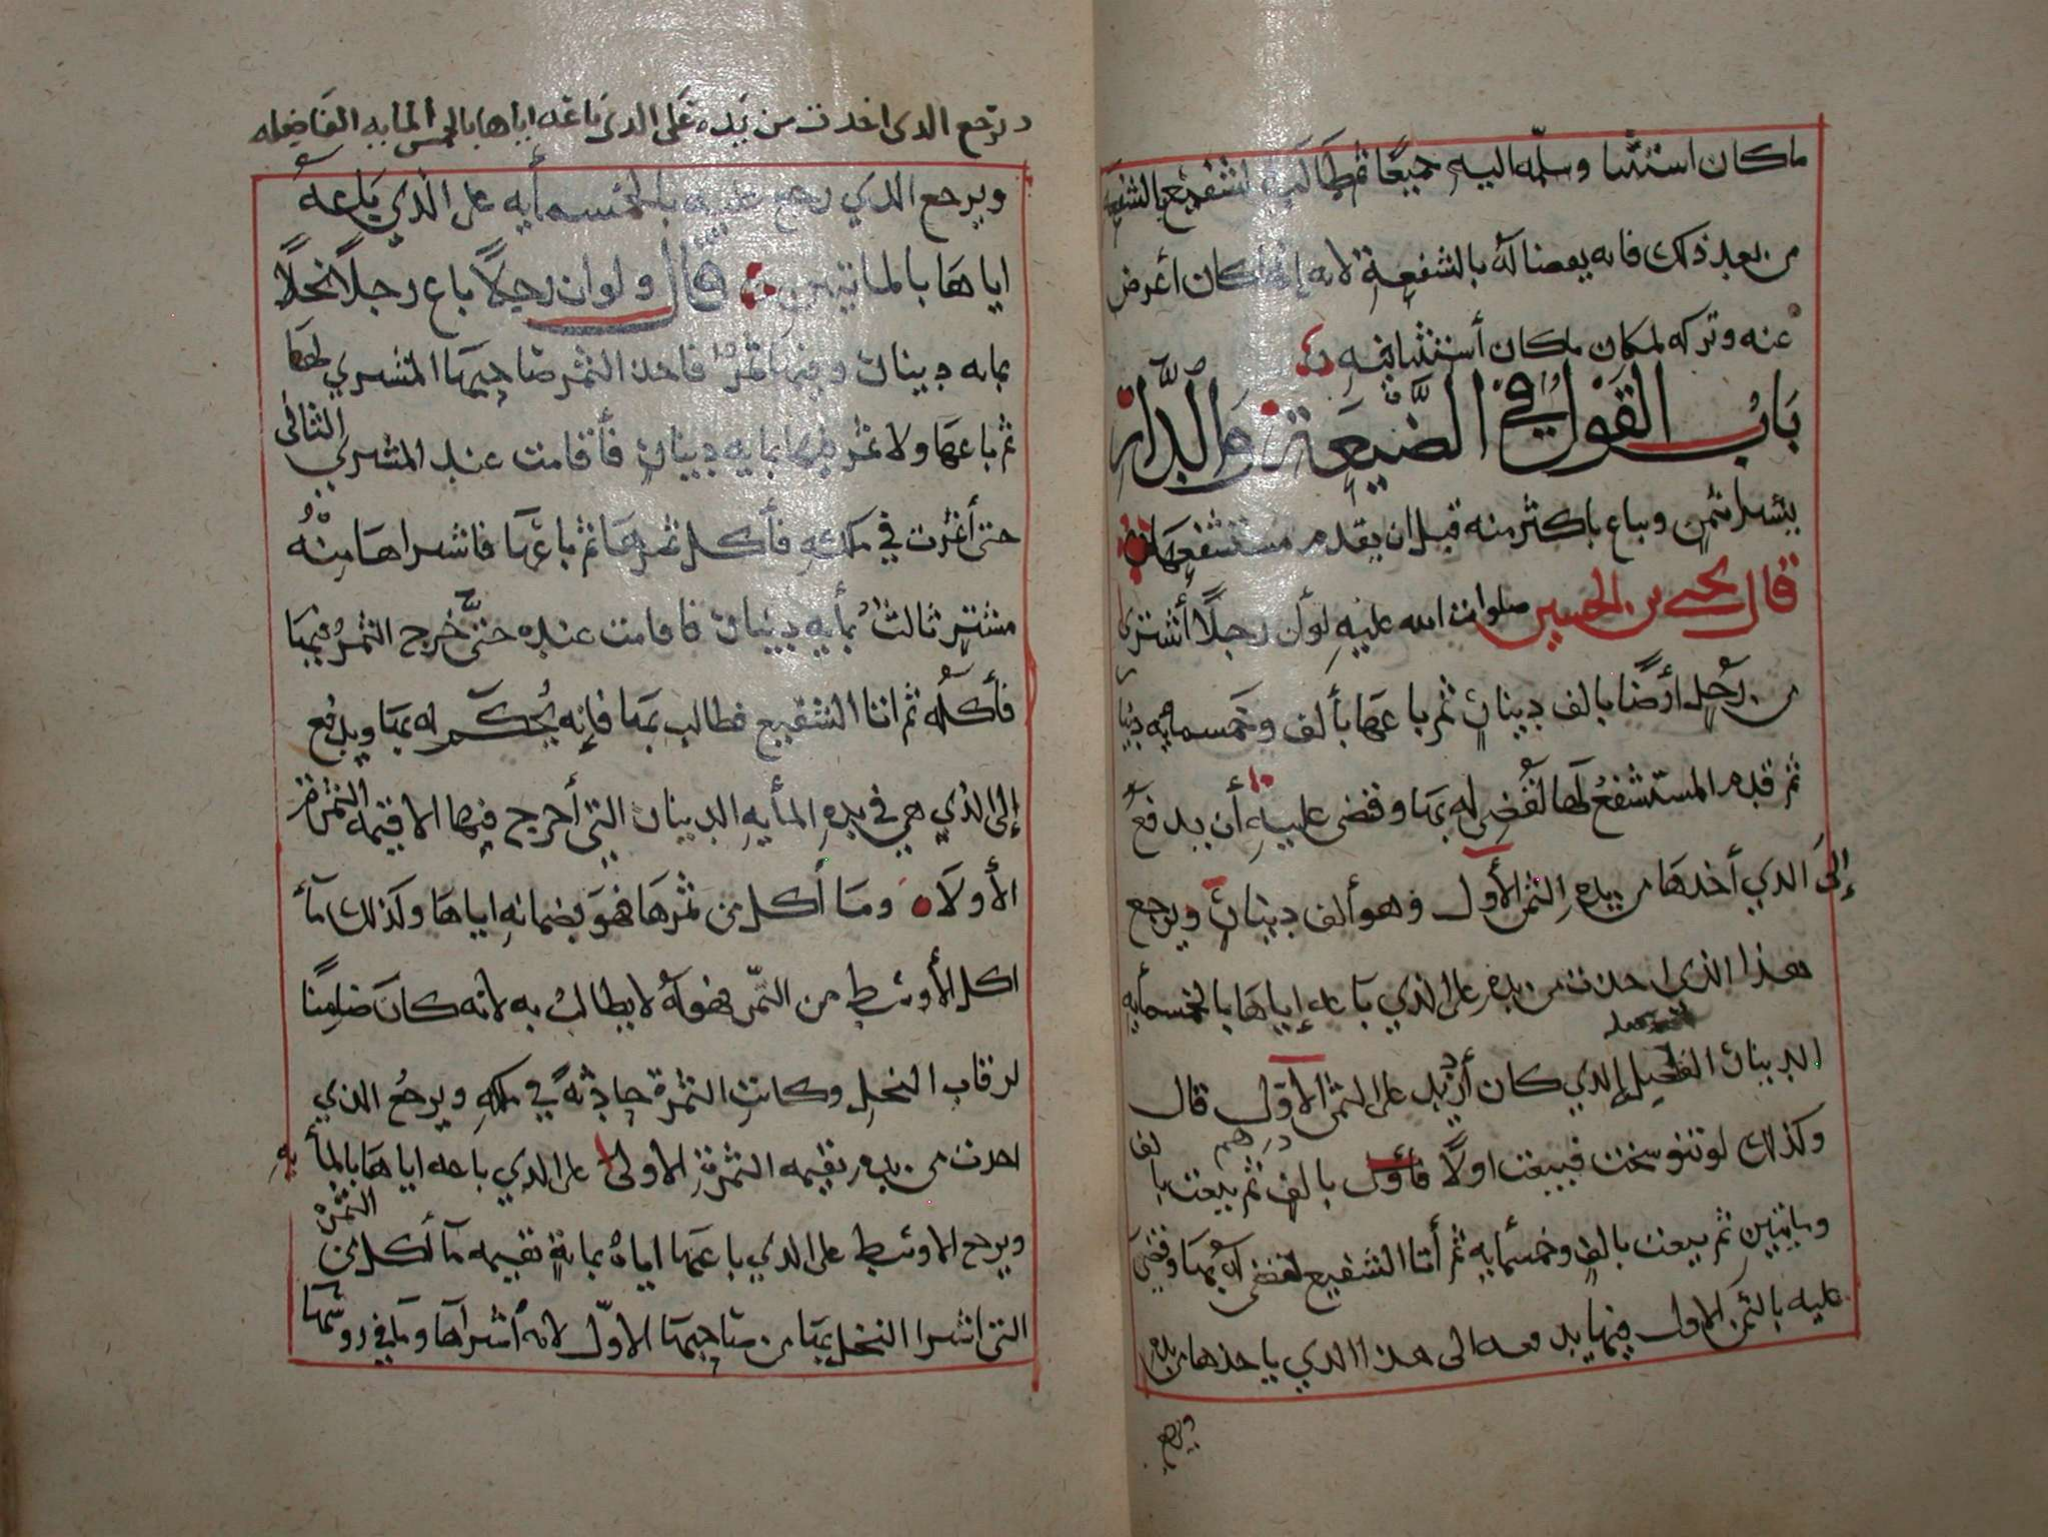 ماكان استثنا وسلمه اليه جميعًا ثم طالب الشفيع بالشفعه
من بعد ذلك فانه يقضا له بالشفعة لانه إنما كان أعرض
عنه وتركه لمكان ماكان أستثنا فيه
باب القول في الضيعة والدار
يشترا بثمن ويباع باكثر منه قبل ان يقدم مستشفعها
قال يحيى بن الحسين صلوات الله عليه لو أن رجلاً أشترى
من رجل أرضًا بالف دينار ثم باعها بألف وخمسمايه دينا
ثم قدم المستشفع لها لقُضي له بها وقضى عليه أن يدفع
إلى الذي أخذها من يده الثمن الأول وهو ألف دينار ويرجع
هذا الذي اخذت من يده على الذي باعه إياها بالخمسمأيه
الدينار الفضل الذي كان أزيد على الثمن الأول قال
وكذلك لو تنوسخت فبيعت اولاً فأول بالف درهم ثم بيعت بالف
ومايتين ثم بيعت بالف وخمسمايه ثم أتا الشفيع لقضى له بها وقضي
عليه بالثمن الاول فيها يدفعه الى هذا الذي ياخذها من يده
ويرجع
ويرجع الذى اخذت من يده على الذى باعه اياها بالخمس المايه الفاضله
ويرجع الذي رجع عليه بالخمسمأيه على الذي باعه
اياها بالماتين قال ولو ان رجلاً باع رجلاً نخلاً
بمايه دينار وفيها ثمرٌ فاخذ الثمر صاحبها المشتري لها
ثم باعها ولا ثمر فيها بمايه دينار فأقامت عند المشتري الثانى
حتى أثمرت في ملكه فأكل ثمرها ثم باعها فاشتراها منه
مشترٍ ثالث بمأيه دينار فاقامت عنده حتى خرج الثمر فيها
فأكله ثم اتا الشفيع فطالب بها فإنه يحكم له بها ويدفع
إلى الذي هي في يده المأيه الدينار التي أخرج فيها الا قيمه الثمره
الأولاه وما أكل من ثمرها فهو بضمانه اياها وكذلك مآ
اكل الأوسط من الثمر فهو له لا يطالب به لانه كان ضامنًا
لرقاب النخل وكانت الثمرة حادثةً في ملكه ويرجع الذي
اخذت من يده بقيمه الثمرة الاولى على الذي باعه اياها بالمأيه
ويرجع الاوسط على الذي باعها اياه بماية بقيمه مآ أكل من الثمره
التى اشترا النخل بها من صاحبها الاول لانه أشتراها وما في روسها